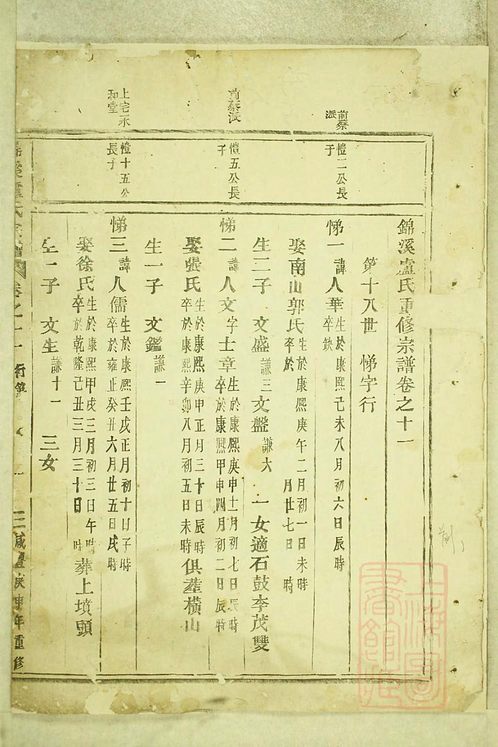 錦溪盧氏重修宗譜卷之十一
第十八世 悌字行
前蔡派
愷二公長子
悌一 諱人華 生於康熙己未八月初六日辰時 卒缺
娶南山郭氏 生於康熙庚午二月初一日未時 卒於 月廿七日 時
生二子 文盛 謙三 文盤 謙六 一女適石鼓李茂雙
前蔡派
愷五公長子
悌二 諱人文字士章 生於康熙庚申十二月初七日辰時 卒於康熙甲申四月初二日 時
娶張氏 生於康熙庚申正月三十日辰時 卒於康熙辛卯八月初五日未時 俱葬橫山
生一子 文鑑 謙一
上宅永和堂
愷十五公長子
悌三 諱人儒 生於康熙壬戌正月初十日子時 卒於雍正癸丑六月廿五日戌時
娶徐氏 生於康熙甲戌三月初三日午時 卒於乾隆己丑三月三十日 時 葬上墳頭
生一子 文生 謙十一 三女
卷之十一 行第
年重修